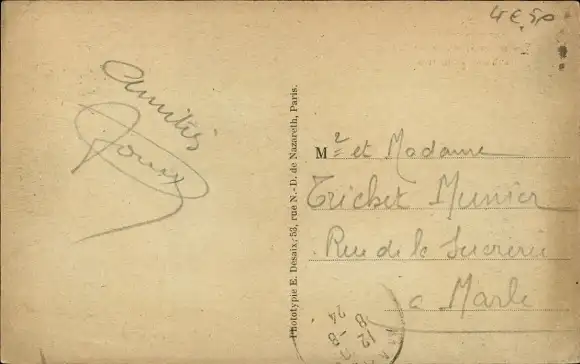 4€50
Amitiés
Phototypie E. Desaix, 53, rue N.-D. de Nazareth, Paris.
Mr et Madame
Trichet Munier
Rue de la Sucrerie
a Marle
12
8 -8
24